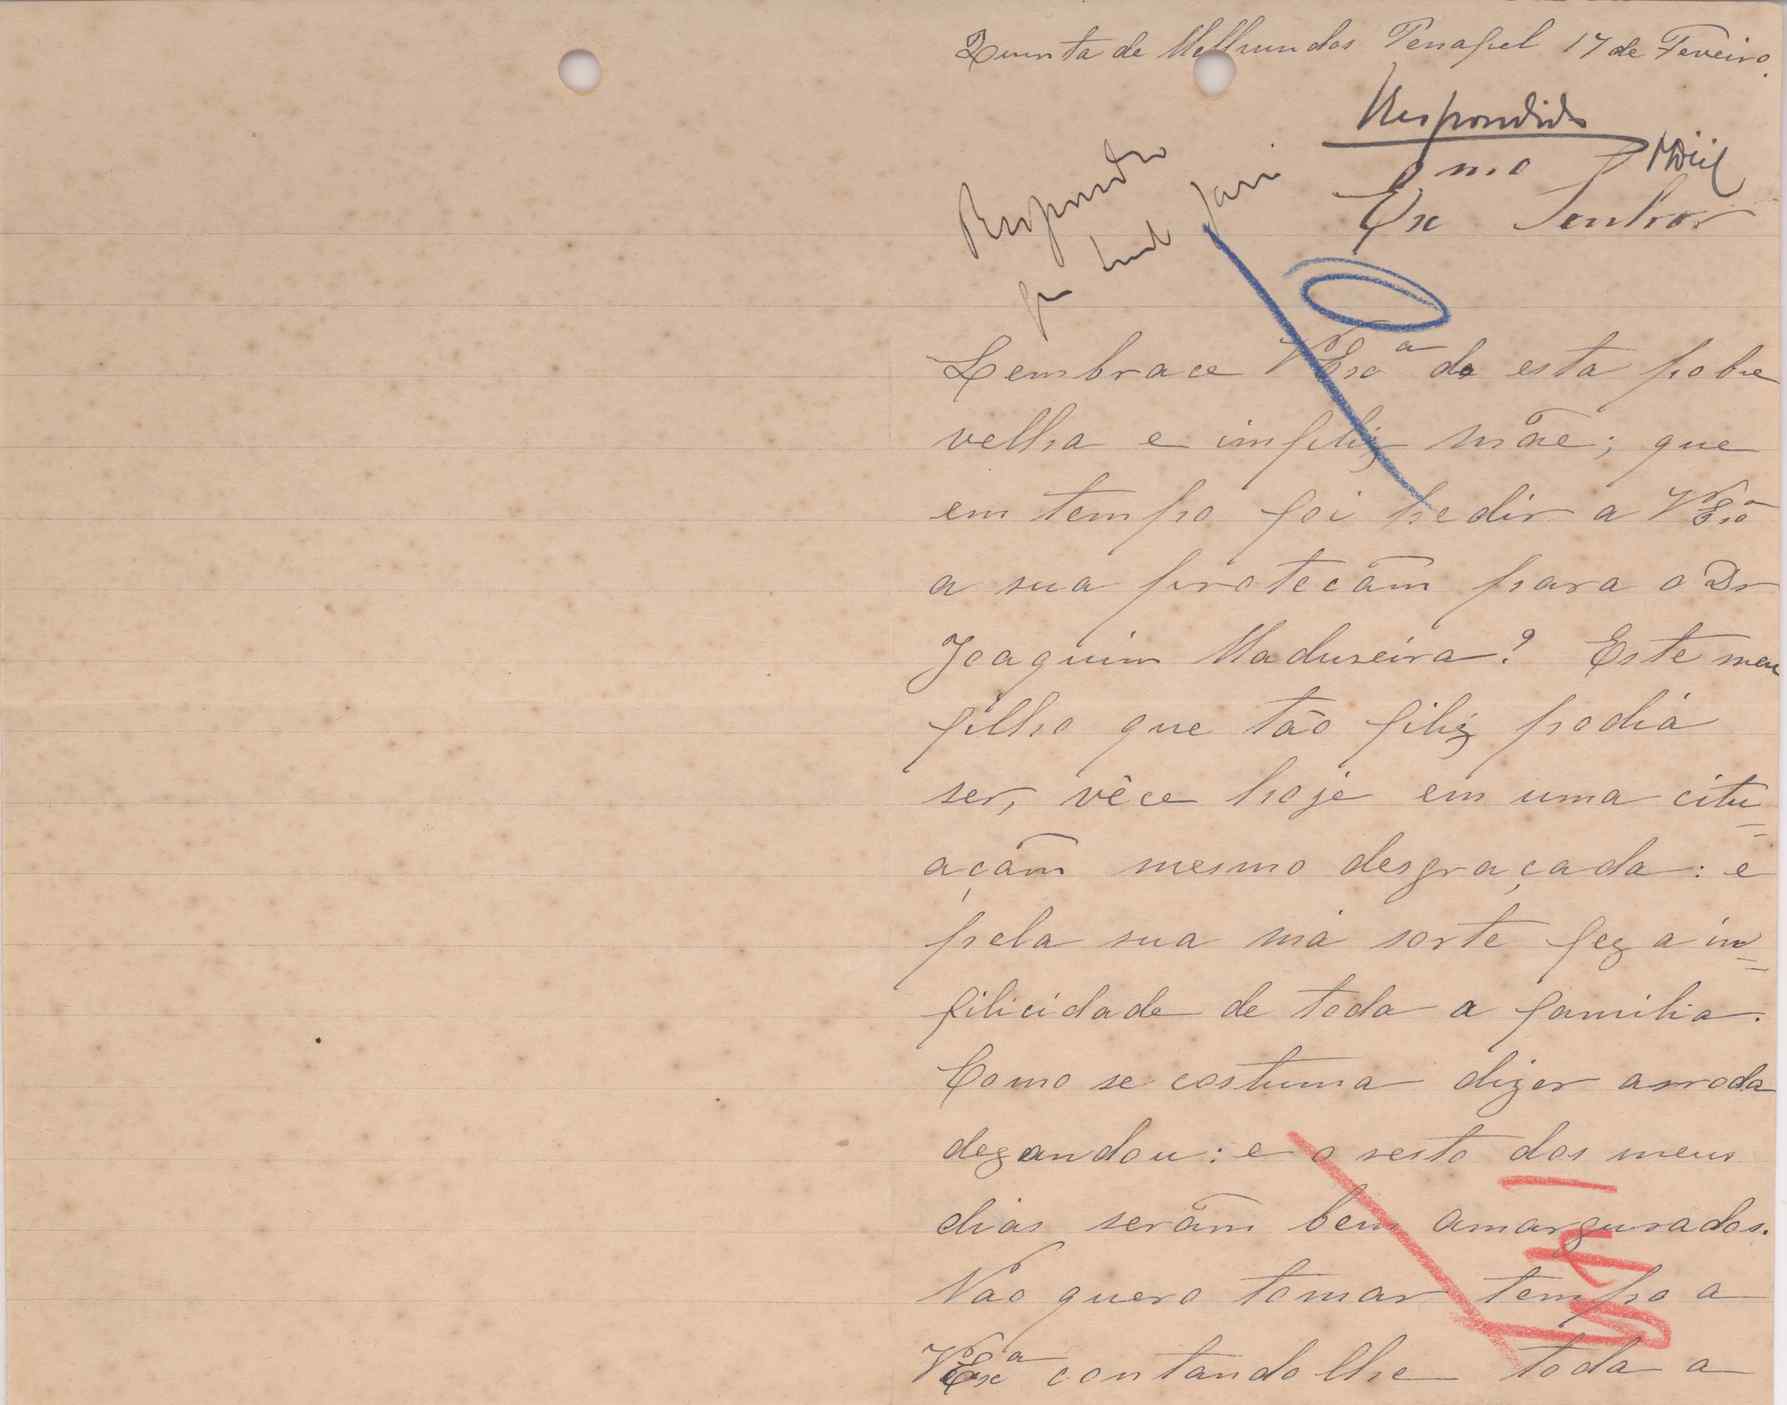 Quinta de Melhundos Penafiel 17 de Feveiro.
Respondido
Exmo Senhor
Lembrace VExa da esta pobre
velha e imfiliz mãe; que
em tempo foi pedir a VExa
a sua protecãm para o Dr
Joaquim Madureira? Este meu
filho que tão filiz podia
ser, vêce hoje em uma citu
açãm mesmo desgraçada: e
pela sua má sorte fez a in
filicidade de toda a familia.
Como se costuma dizer arroda
dezandou: e o resto dos meus
dias serãm bem amargurados.
Não quero tomar tempo a
VExa contandolhe toda a